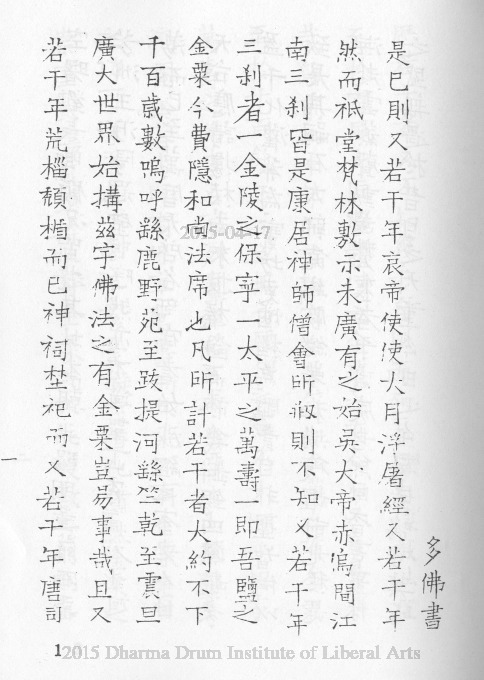 多佛書
是已則又若干年哀帝使使大月浮屠經又若干年
然而祇堂梵林敷示未廣有之始吳大帝赤烏間江
南三刹皆是康居神師僧會所瓶則不知又若干年
三刹者一金陵之保寧一太平之萬壽一即吾鹽之
金粟今費隱和尚法席也凡所計若干者大約不下
千百歲數嗚呼繇鹿野苑至跋提河繇竺乾至震旦
廣大世界始搆茲宇佛法之有金粟豈易事哉且又
若干年荒榴頹楯而已神祠埜祀而又若干年唐司
一
2015-04-17
1
2015 Dharma Drum Institute of Liberal Arts